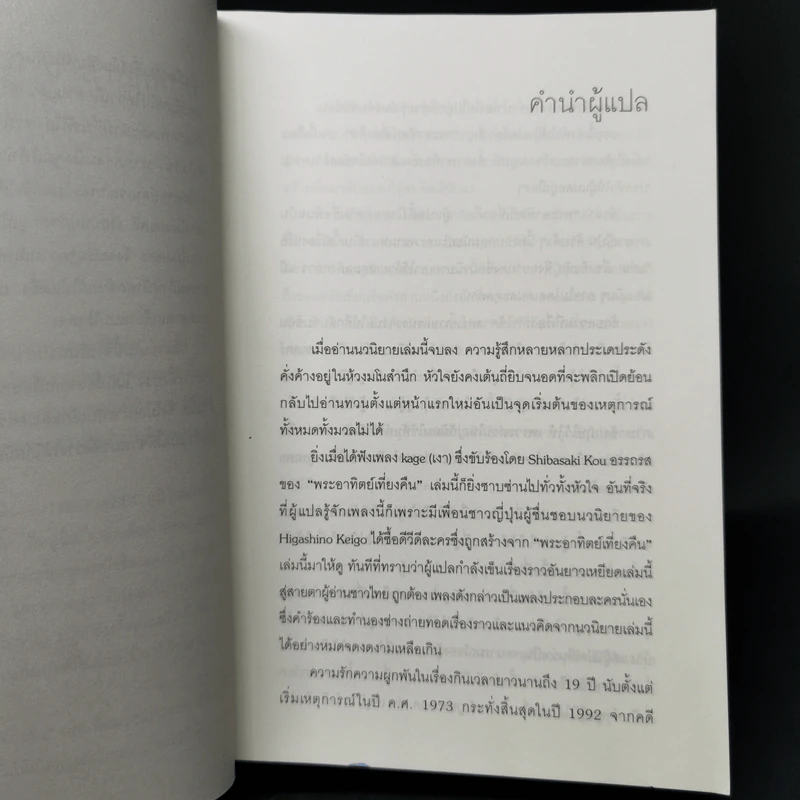 คำนำผู้แปล
เมื่ออ่านนวนิยายเล่มนี้จบลง ความรู้สึกหลายหลากประเดประดัง
คั่งค้างอยู่ในห้วงมโนสำนึก หัวใจยังคงเต้นถี่ยิบจนอดที่จะพลิกเปิดย้อน
กลับไปอ่านทวนตั้งแต่หน้าแรกใหม่อันเป็นจุดเริ่มต้นของเหตุการณ์
ทั้งหมดทั้งมวลไม่ได้
ยิ่งเมื่อได้ฟังเพลง kage (เงา) ซึ่งขับร้องโดย Shibasaki Kou อรรถรส
ของ “พระอาทิตย์เที่ยงคืน” เล่มนี้ก็ยิ่งซาบซ่านไปทั่วทั้งหัวใจ อันที่จริง
ที่ผู้แปลรู้จักเพลงนี้ก็เพราะมีเพื่อนชาวญี่ปุ่นผู้ชื่นชอบนวนิยายของ
Higashino Keigo ได้ซื้อดีวีดีละครซึ่งถูกสร้างจาก “พระอาทิตย์เที่ยงคืน”
เล่มนี้มาให้ดู ทันทีที่ทราบว่าผู้แปลกำลังเข็นเรื่องราวอันยาวเหยียดเล่มนี้
สู่สายตาผู้อ่านชาวไทย ถูกต้อง เพลงดังกล่าวเป็นเพลงประกอบละครนั่นเอง
ซึ่งคำร้องและทำนองช่างถ่ายทอดเรื่องราวและแนวคิดจากนวนิยายเล่มนี้
ได้อย่างหมดจดงดงามเหลือเกิน
ความรักความผูกพันในเรื่องกินเวลายาวนานถึง 19 ปี นับตั้งแต่
เริ่มเหตุการณ์ในปี ค.ศ. 1973 กระทั่งสิ้นสุดในปี 1992 จากคดี